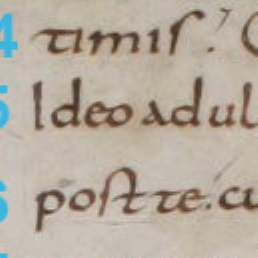 4 timis.' C
5 Ideo adul
6 post te. cu